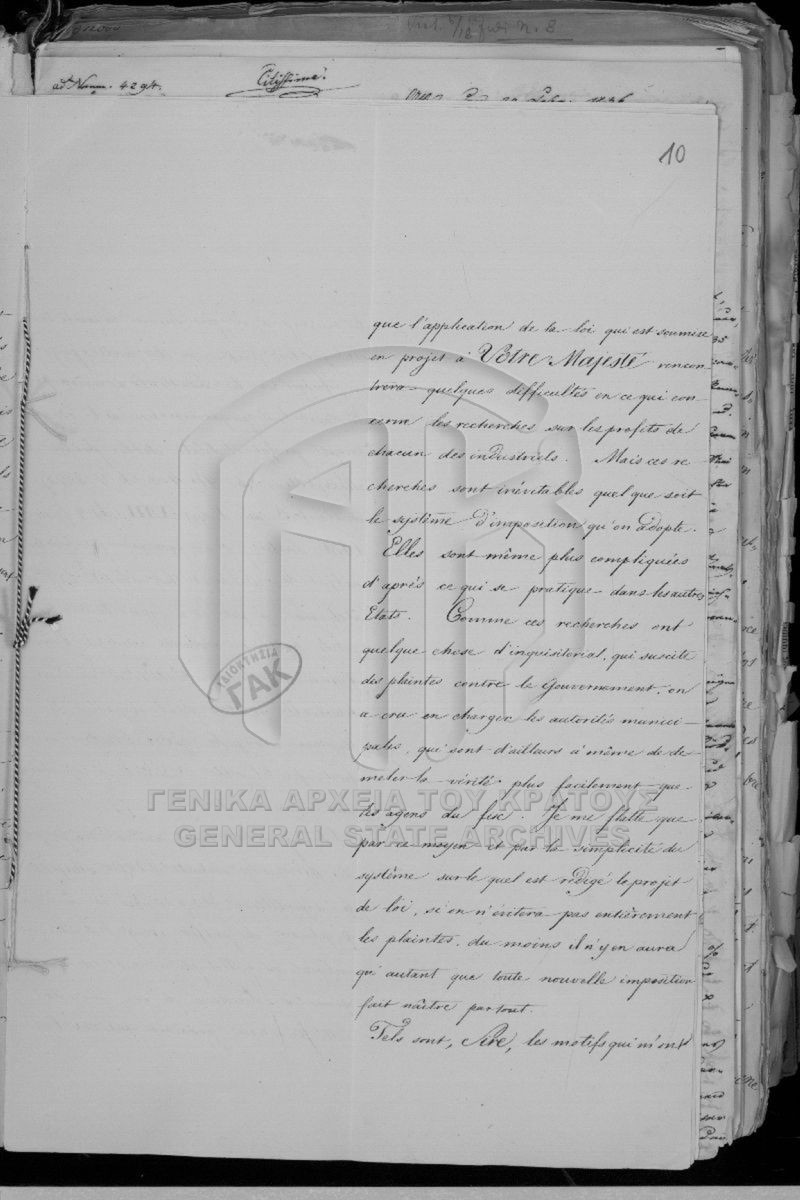 ad Norum. 4294.
Citissime!
10
que l'application de la loi qui est soumise
en projet à Votre Majesté rencon
trera quelques difficultés en ce qui con
cerne les recherches sur les profits de
chacun des industriels. Mais ces re
cherches sont inévitables quel que soit
le système d'imposition qu'on adopte.
Elles sont même plus compliquées
d'après ce qui se pratique dans les autres
Etats. Comme ces recherches ont
quelque chose d'inquisitorial, qui suscite
des plaintes contre le Gouvernement, on
a cru en charger les autorités munici
pales, qui sont d'ailleurs à même de dé
meler la vérité plus facilement que
les agens du fisc. Je me flatte que
par ce moyen et par la simplicité du
système sur le quel est rédigé le projet
de loi, si on n'évitera pas entièrement
les plaintes, du moins il n'y en aura
qu'autant que toute nouvelle imposition
fait naître partout.
Tels sont, Sire, les motifs qui m'ont
ΓΕΝΙΚΑ ΑΡΧΕΙΑ ΤΟΥ ΚΡΑΤΟΥΣ
GENERAL STATE ARCHIVES
ΓΑΚ